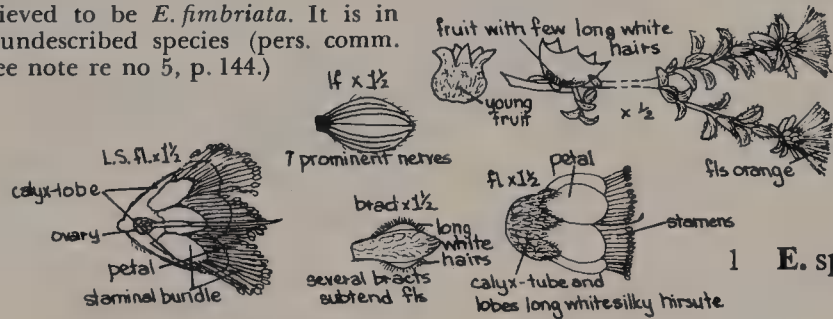 ieved to be E. fimbriata. It is in
undescribed species (pers. comm.
ee note re no 5, p. 144.)
fruit with few long white
hairs
young
fruit
x ½
fls orange
lf x 1½
7 prominent nerves
L.S. fl. x 1½
calyx-lobe
ovary
petal
staminal bundle
bract x 1½
long
white
hairs
several bracts
subtend fls
fl x 1½
petal
stamens
calyx-tube and
lobes long white silky hirsute
1 E. sp